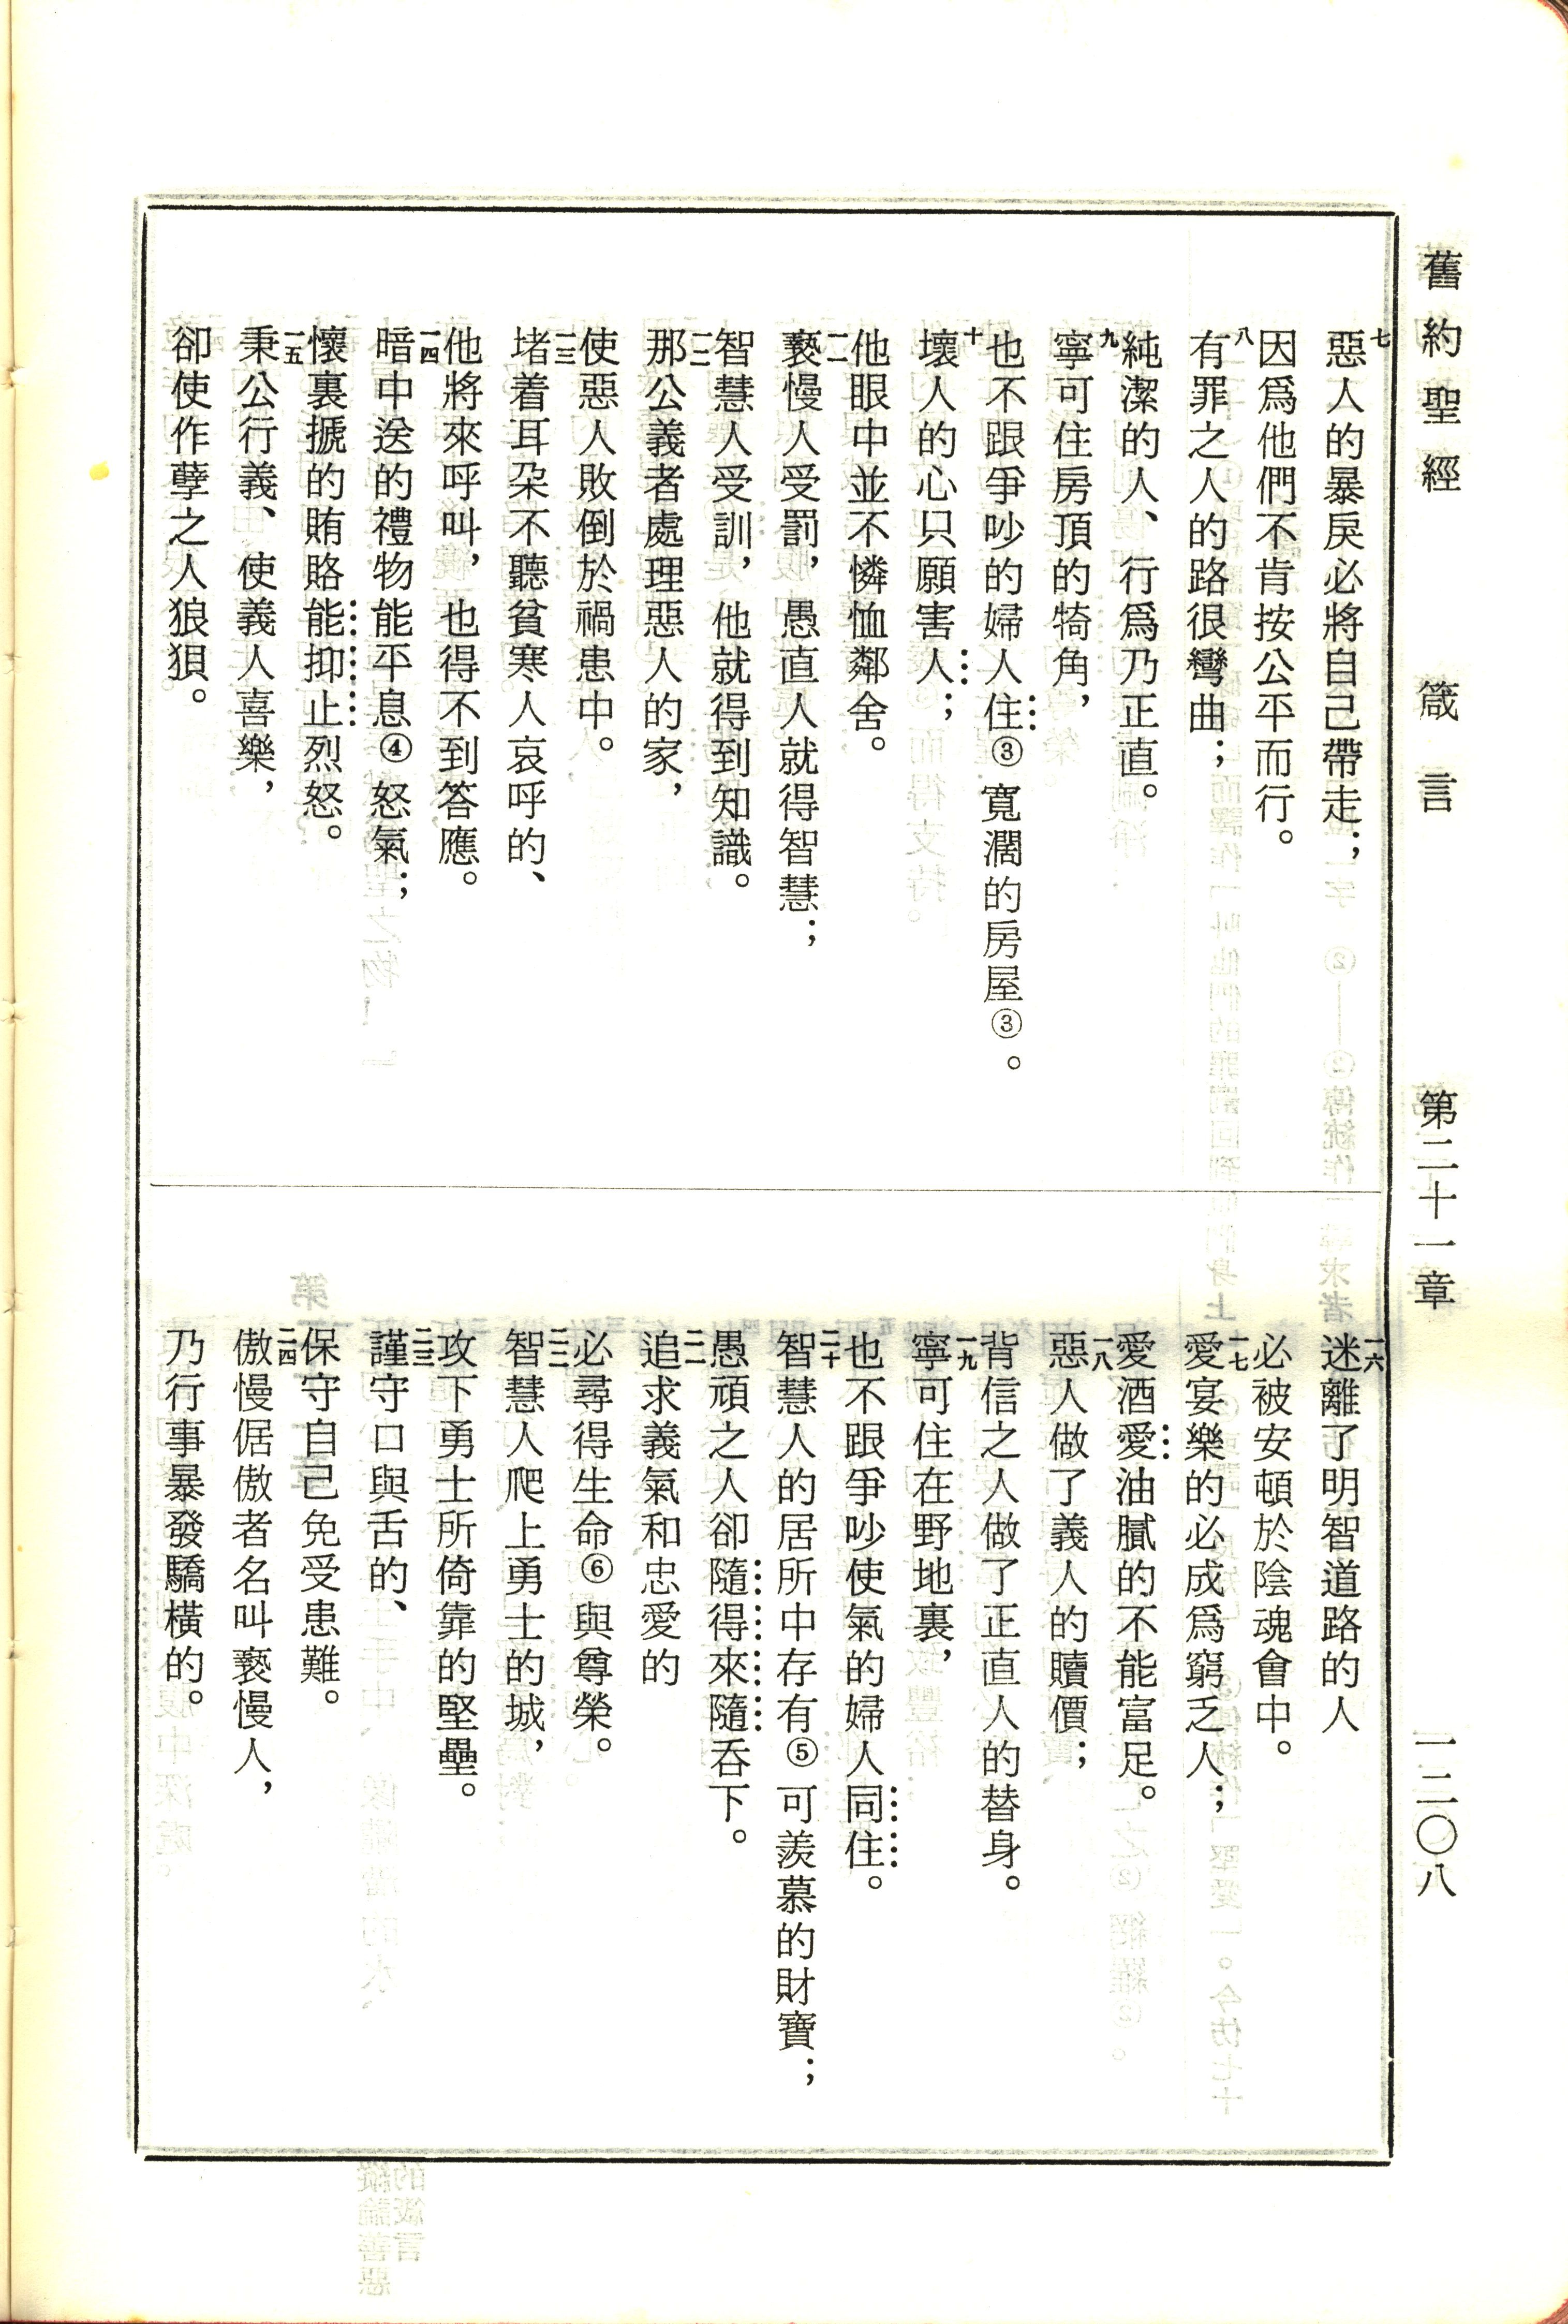 舊約聖經　箴言　第二十一章　一二〇八
七惡人的暴戾必將自己帶走；
因爲他們不肯按公平而行。
八有罪之人的路很彎曲；
純潔的人、行爲乃正直。
九寧可住房頂的犄角，
也不跟爭吵的婦人住③寬濶的房屋③。
十壞人的心只願害人；
他眼中並不憐恤鄰舍。
一一褻慢人受罰，愚直人就得智慧；
智慧人受訓，他就得到知識。
一二那公義者處理惡人的家，
使惡人敗倒於禍患中。
一三堵着耳朶不聽貧寒人哀呼的、
他將來呼叫，也得不到答應。
一四暗中送的禮物能平息④怒氣；
懷裏搋的賄賂能抑止烈怒。
一五秉公行義、使義人喜樂，
卻使作孽之人狼狽。
一六迷離了明智道路的人
必被安頓於陰魂會中。
一七愛宴樂的必成爲窮乏人；
愛酒愛油膩的不能富足。
一八惡人做了義人的贖價；
背信之人做了正直人的替身。
一九寧可住在野地裏，
也不跟爭吵使氣的婦人同住。
二十智慧人的居所中存有⑤可羨慕的財寶；
愚頑之人卻隨得來隨吞下。
二一追求義氣和忠愛的
必尋得生命⑥與尊榮。
二二智慧人爬上勇士的城，
攻下勇士所倚靠的堅壘。
二三謹守口與舌的、
保守自己免受患難。
二四傲慢倨傲者名叫褻慢人，
乃行事暴發驕橫的。